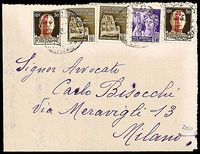 Signor Avvocato
Carlo Bisocchi
Via Meravigli 13
Milano